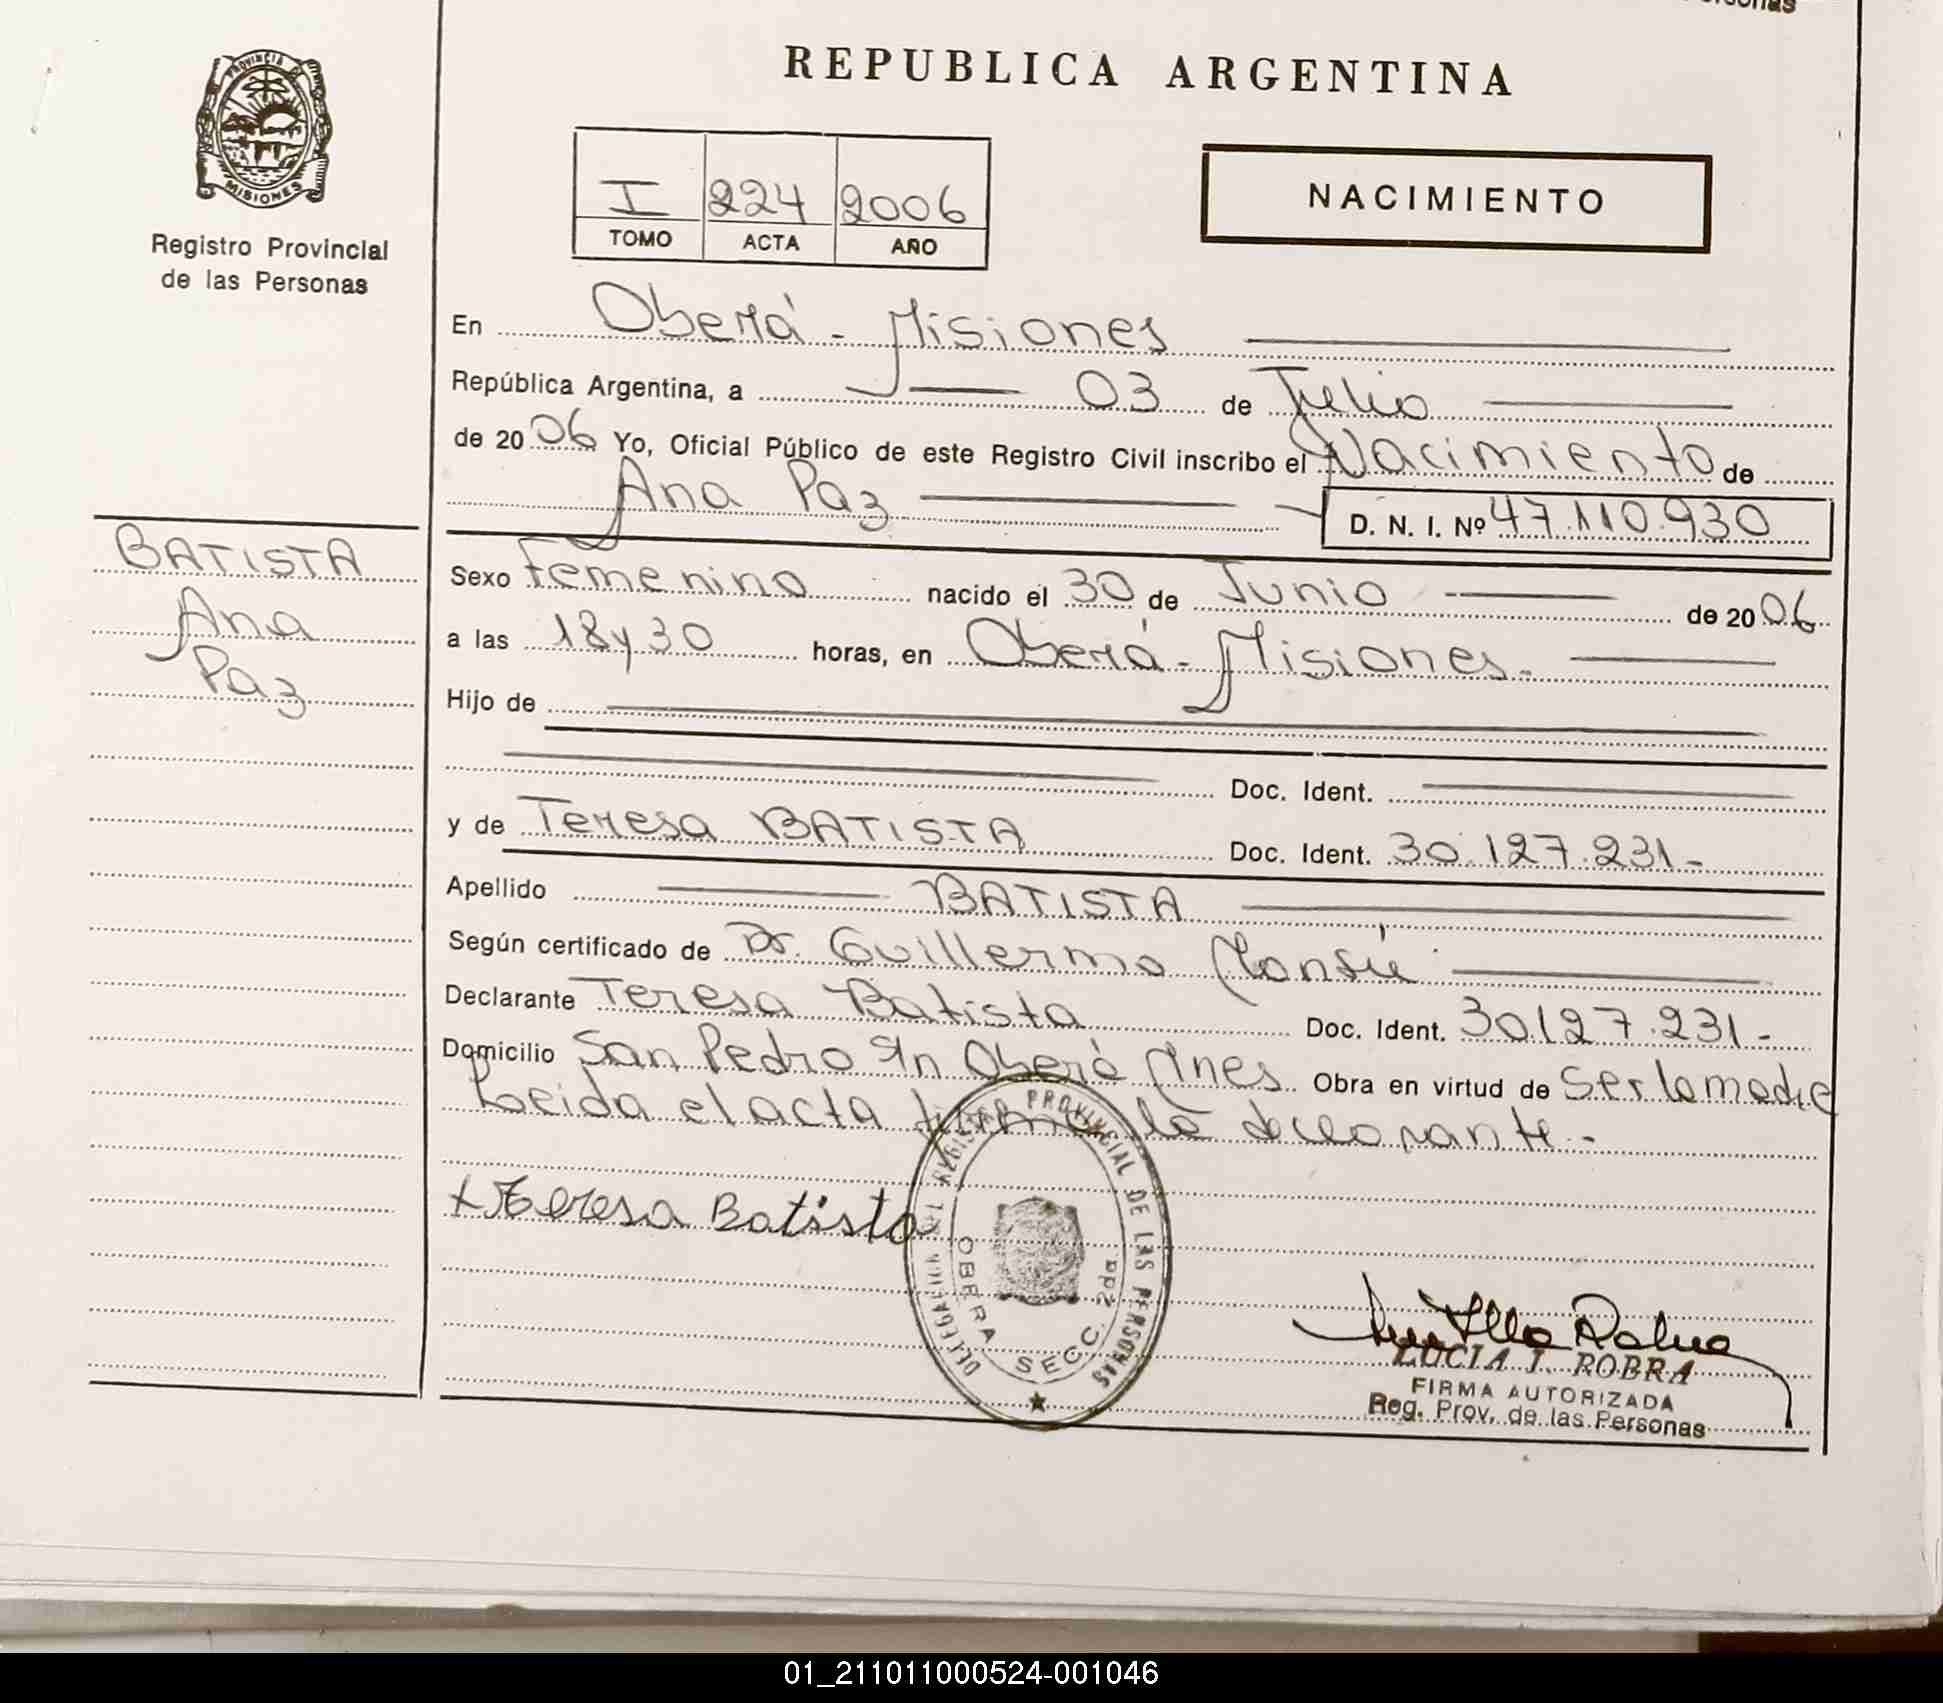 REPUBLICA ARGENTINA
PROVINCIA DE
MISIONES
Registro Provincial
de las Personas
I 224 2006
TOMO ACTA AÑO
NACIMIENTO
En Oberá - Misiones
República Argentina, a 03 de Julio
de 2006 Yo, Oficial Público de este Registro Civil inscribo el Nacimiento de
Ana Paz D. N. I. Nº 47.110.930
BATISTA
Ana
Paz
Sexo Femenino nacido el 30 de Junio de 2006
a las 18 y 30 horas, en Oberá - Misiones.
Hijo de
Doc. Ident.
y de Teresa BATISTA Doc. Ident. 30.127.231-
Apellido BATISTA
Según certificado de Dr. Guillermo
Declarante Teresa Batista Doc. Ident. 30.127.231-
Domicilio San Pedro s/n Oberá Mnes. Obra en virtud de Ser la madre
Leida el acta firma la declarante.-
x Teresa Batista
REGISTRO PROVINCIAL DE LAS PERSONAS
OBERA SECC. 2da
LUCIA I. ROBRA
FIRMA AUTORIZADA
Reg. Prov. de las Personas
01_211011000524-001046